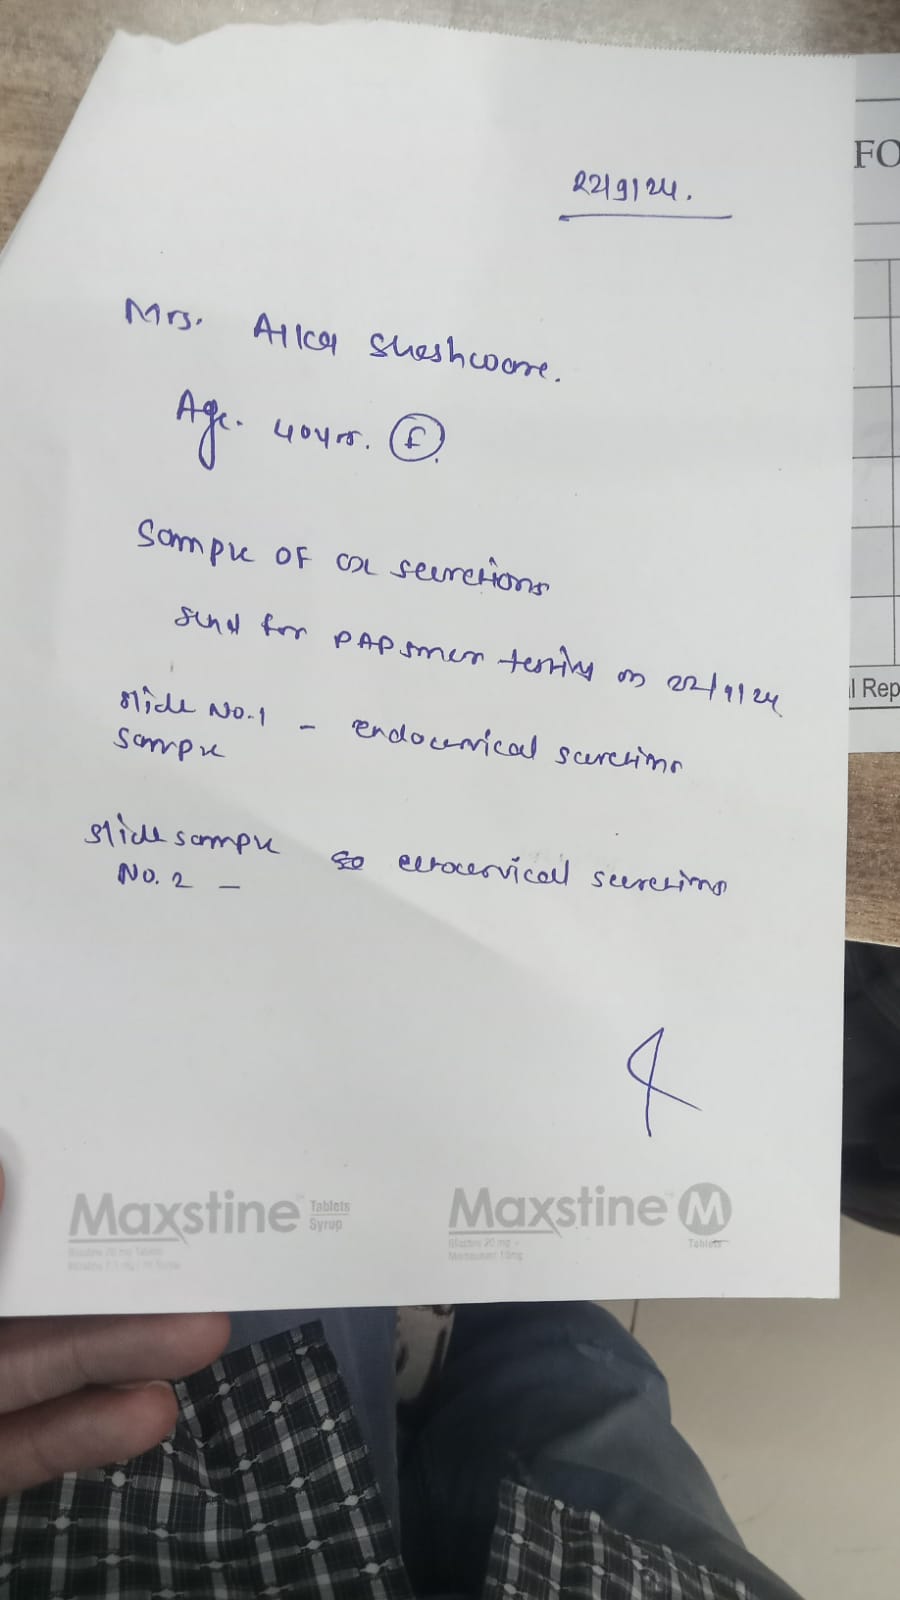 FO
22/9/24.
Mrs. Alka Sheshware.
Age. 40yrs. F.
Sample OF cx secretions
send for PAP smear testing on 22/9/24
l Rep
slide No.1 - endocervical secretions
sample
slide sample ectocervical secretions
No. 2 -
Maxstine Tablets
Syrup
Maxstine M
Tablets